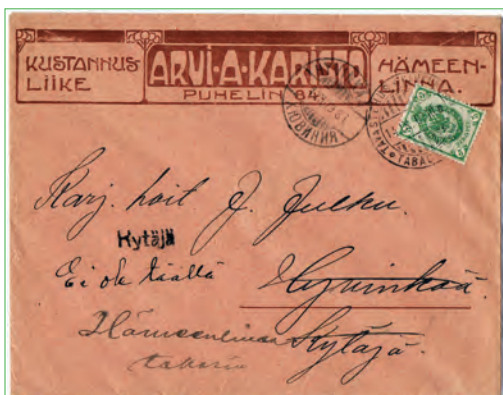 KUSTANNUS-
LIIKE
ARVI·A·KARISTO
PUHELIN 84
HÄMEEN-
LINNA.
Karj. hoit J. Julku.
Kytäjä
Ei ole täällä
Hyvinkää
Hämeenlinnaan
Kytäjä.
takaisin